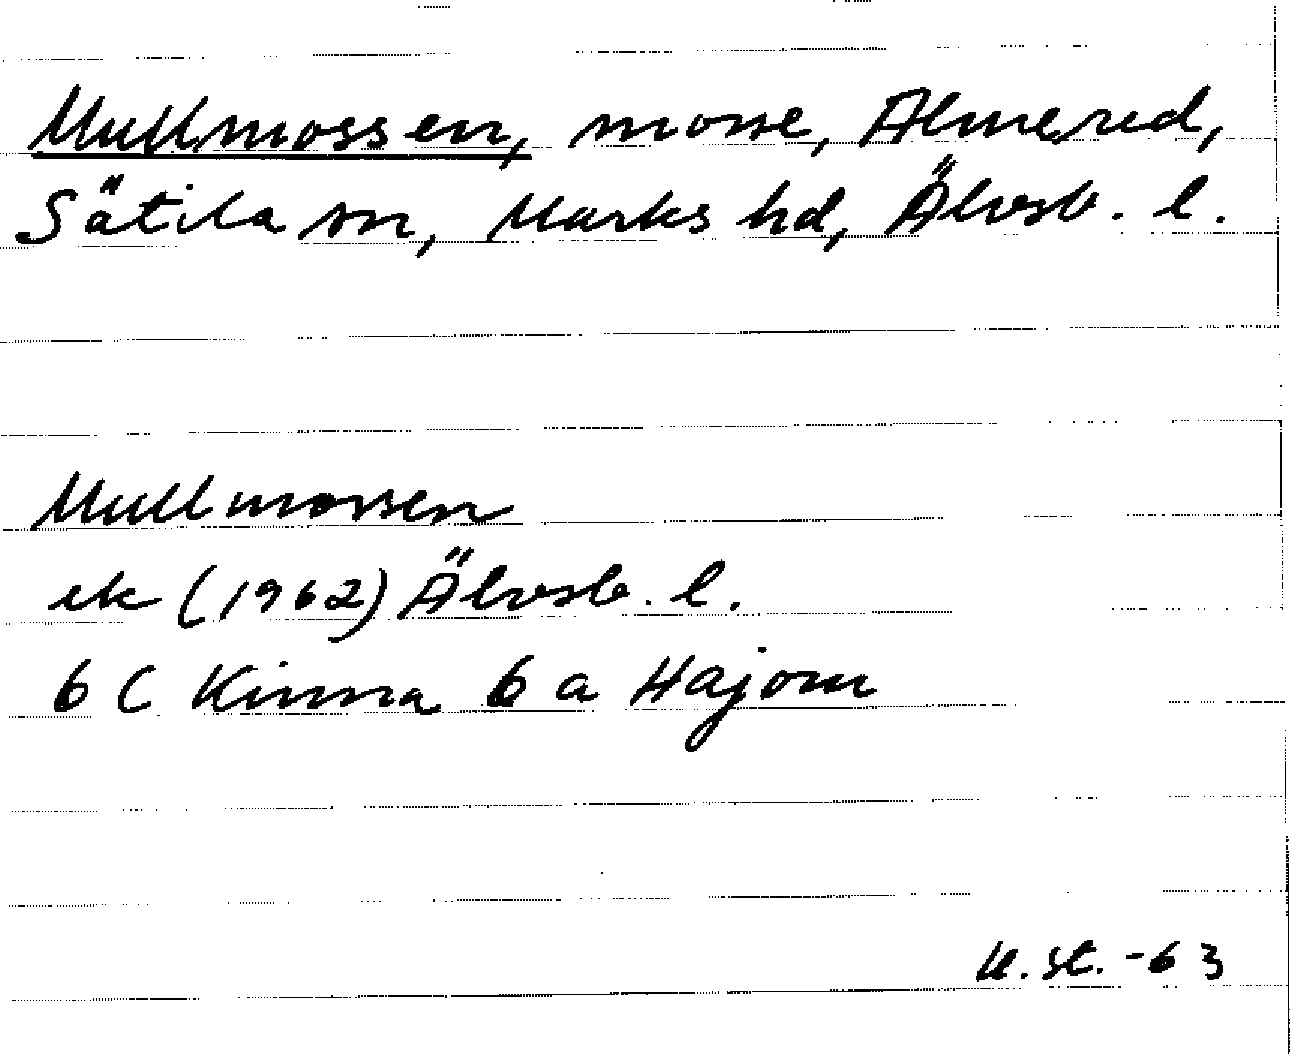 Mullmossen, mosse, Almered,
Sätila sn, Marks hd, Älvsb. l.
Mullmossen
ek (1962) Älvsb. l.
6 C Kinna 6 a Hajom
U. St. -63